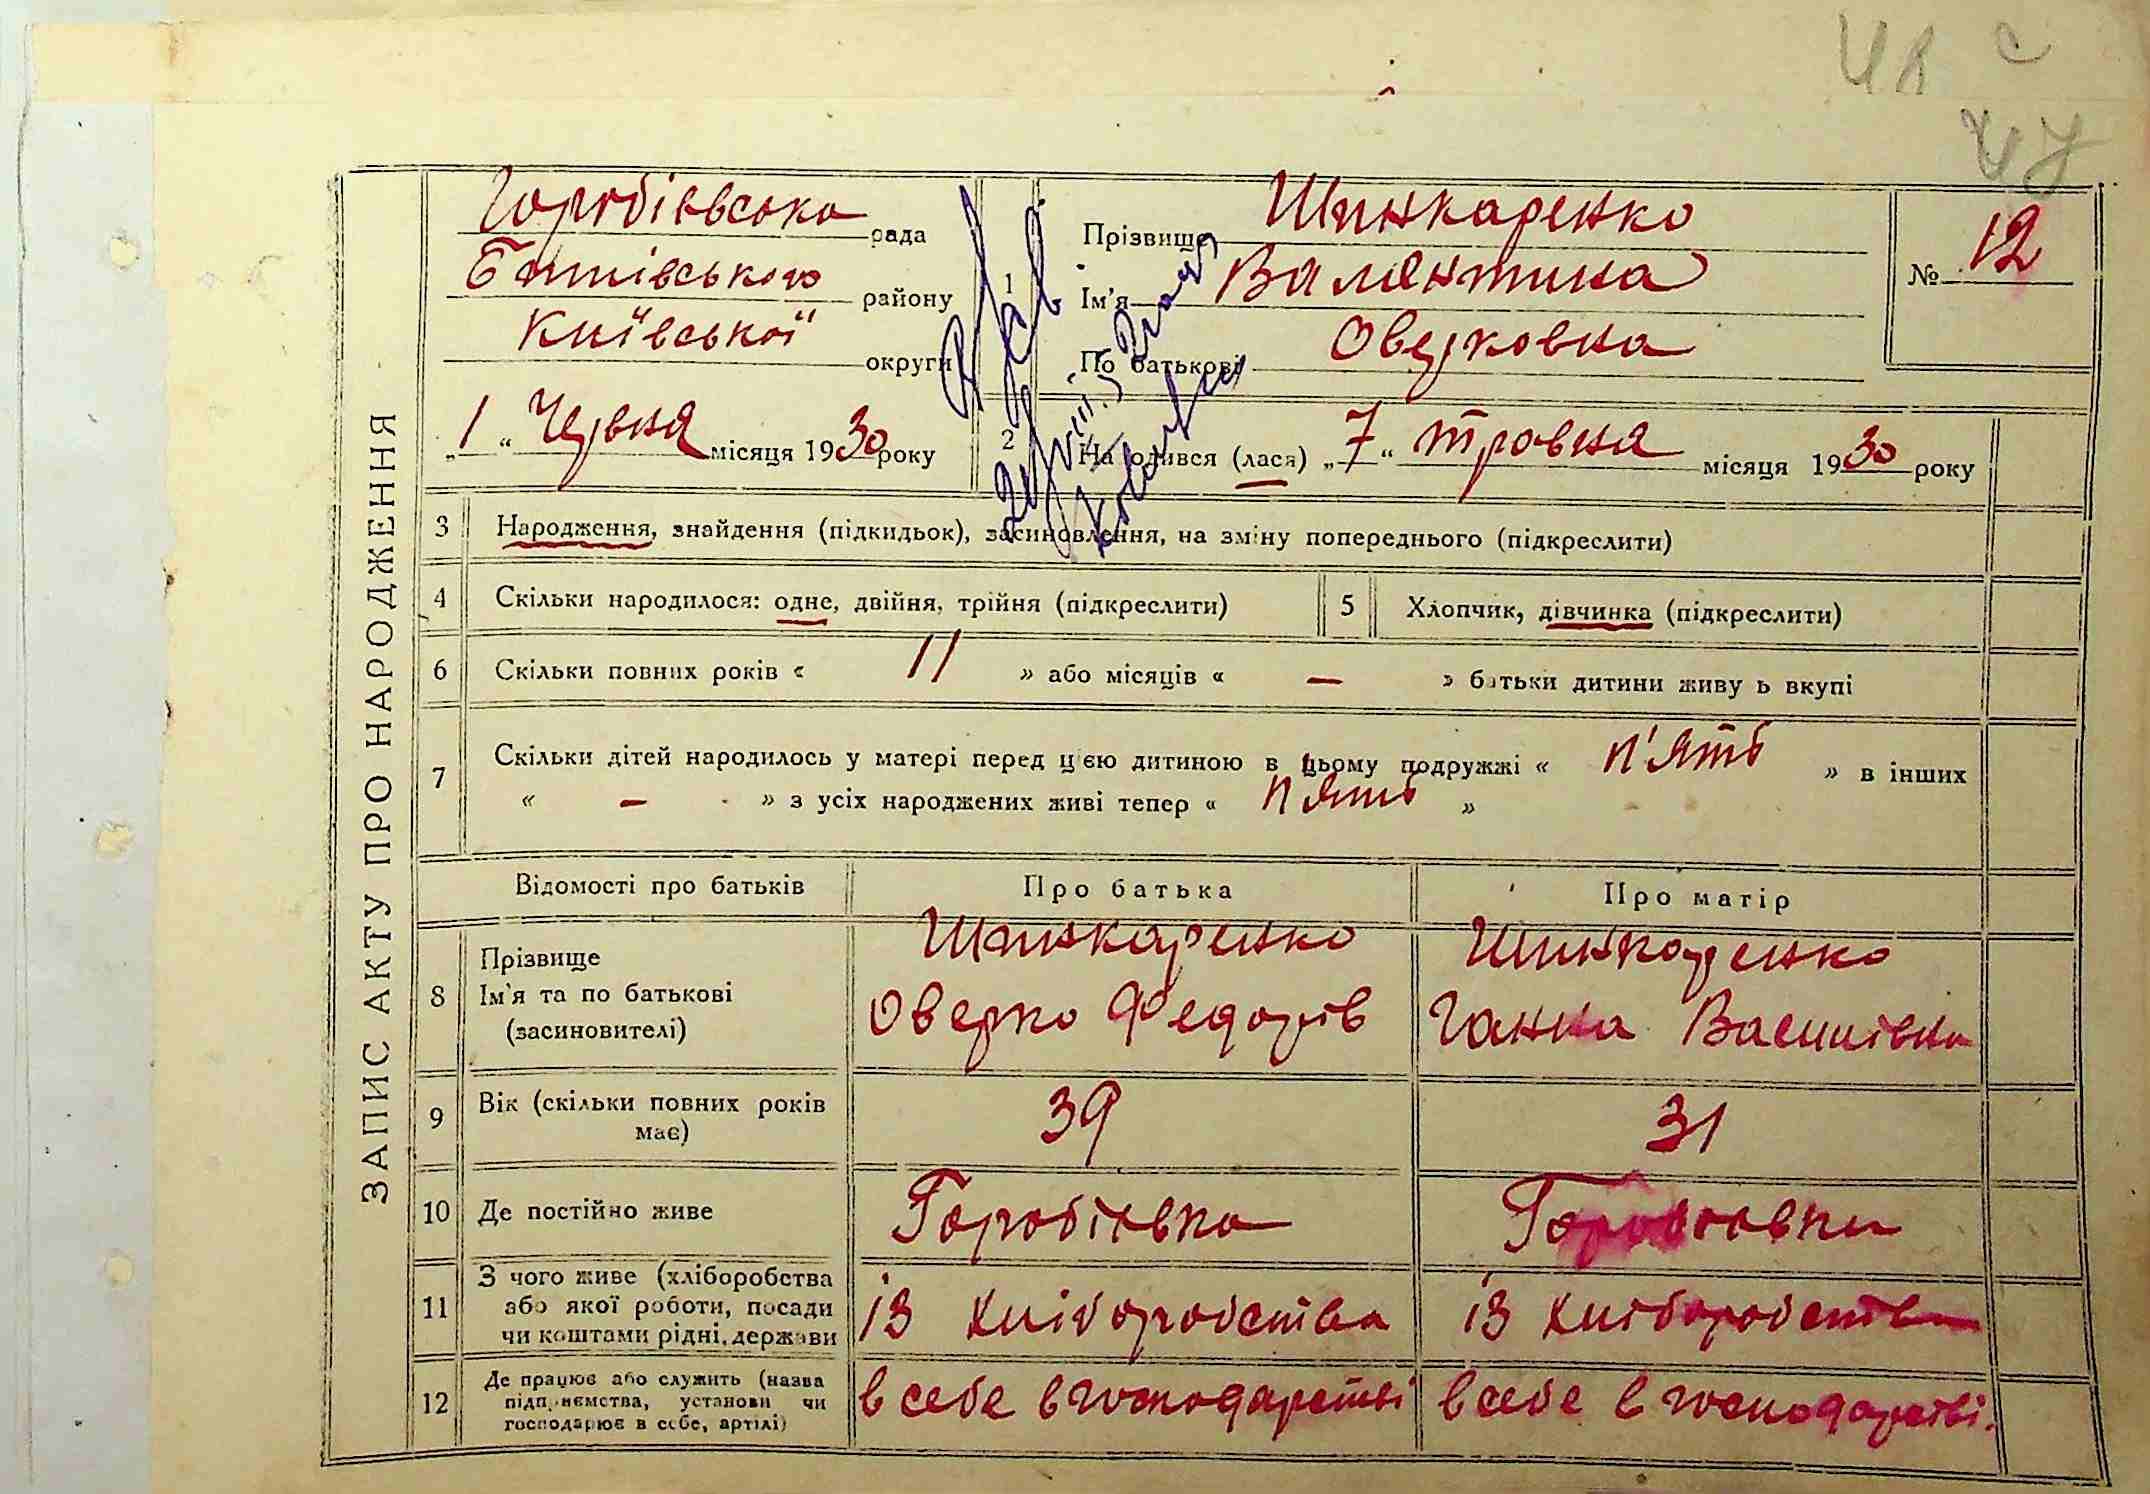 48 с
47
ЗАПИС АКТУ ПРО НАРОДЖЕННЯ
Горобіївська рада
району
Київської округи
„1“ Червня місяця 1930 року
1 Прізвище Шинкаренко
Ім'я Валентина
По батькові Оверковна
№ 12
2 Народився (лася) „7“ травня місяця 1930 року
3 Народження, знайдення (підкидьок), засиновлення, на зміну попереднього (підкреслити)
4 Скільки народилося: одне, двійня, трійня (підкреслити)
5 Хлопчик, дівчинка (підкреслити)
6 Скільки повних років « 11 » або місяців « — » батьки дитини живуть вкупі
7 Скільки дітей народилось у матері перед цією дитиною в цьому подружжі « п'ять » в інших
« — » з усіх народжених живі тепер « п'ять »
Відомості про батьків Про батька Про матір
8 Прізвище Шинкаренко Шинкаренко
Ім'я та по батькові Оверко Федорів Ганна Василівна
(засиновителі)
9 Вік (скільки повних років 39 31
має)
10 Де постійно живе Горобіївка Горобіївка
11 З чого живе (хліборобства
або якої роботи, посади із хліборобства із хліборобства
чи коштами рідні, держави
12 Де працює або служить (назва
підприємства, установи чи в себе в господарстві в себе в господарстві.
господарює в себе, артілі)